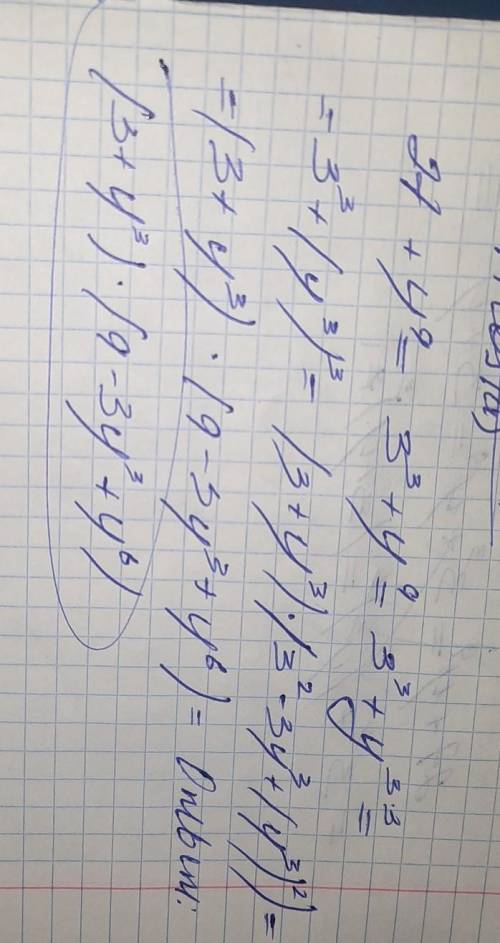 27 + y⁹ = 3³ + y⁹ = 3³ + y³·³ =
= 3³ + (y³)³ = (3 + y³)·(3² - 3y³ + (y³)²) =
= (3 + y³)·(9 - 3y³ + y⁶) = Ответ:
(3 + y³)·(9 - 3y³ + y⁶)